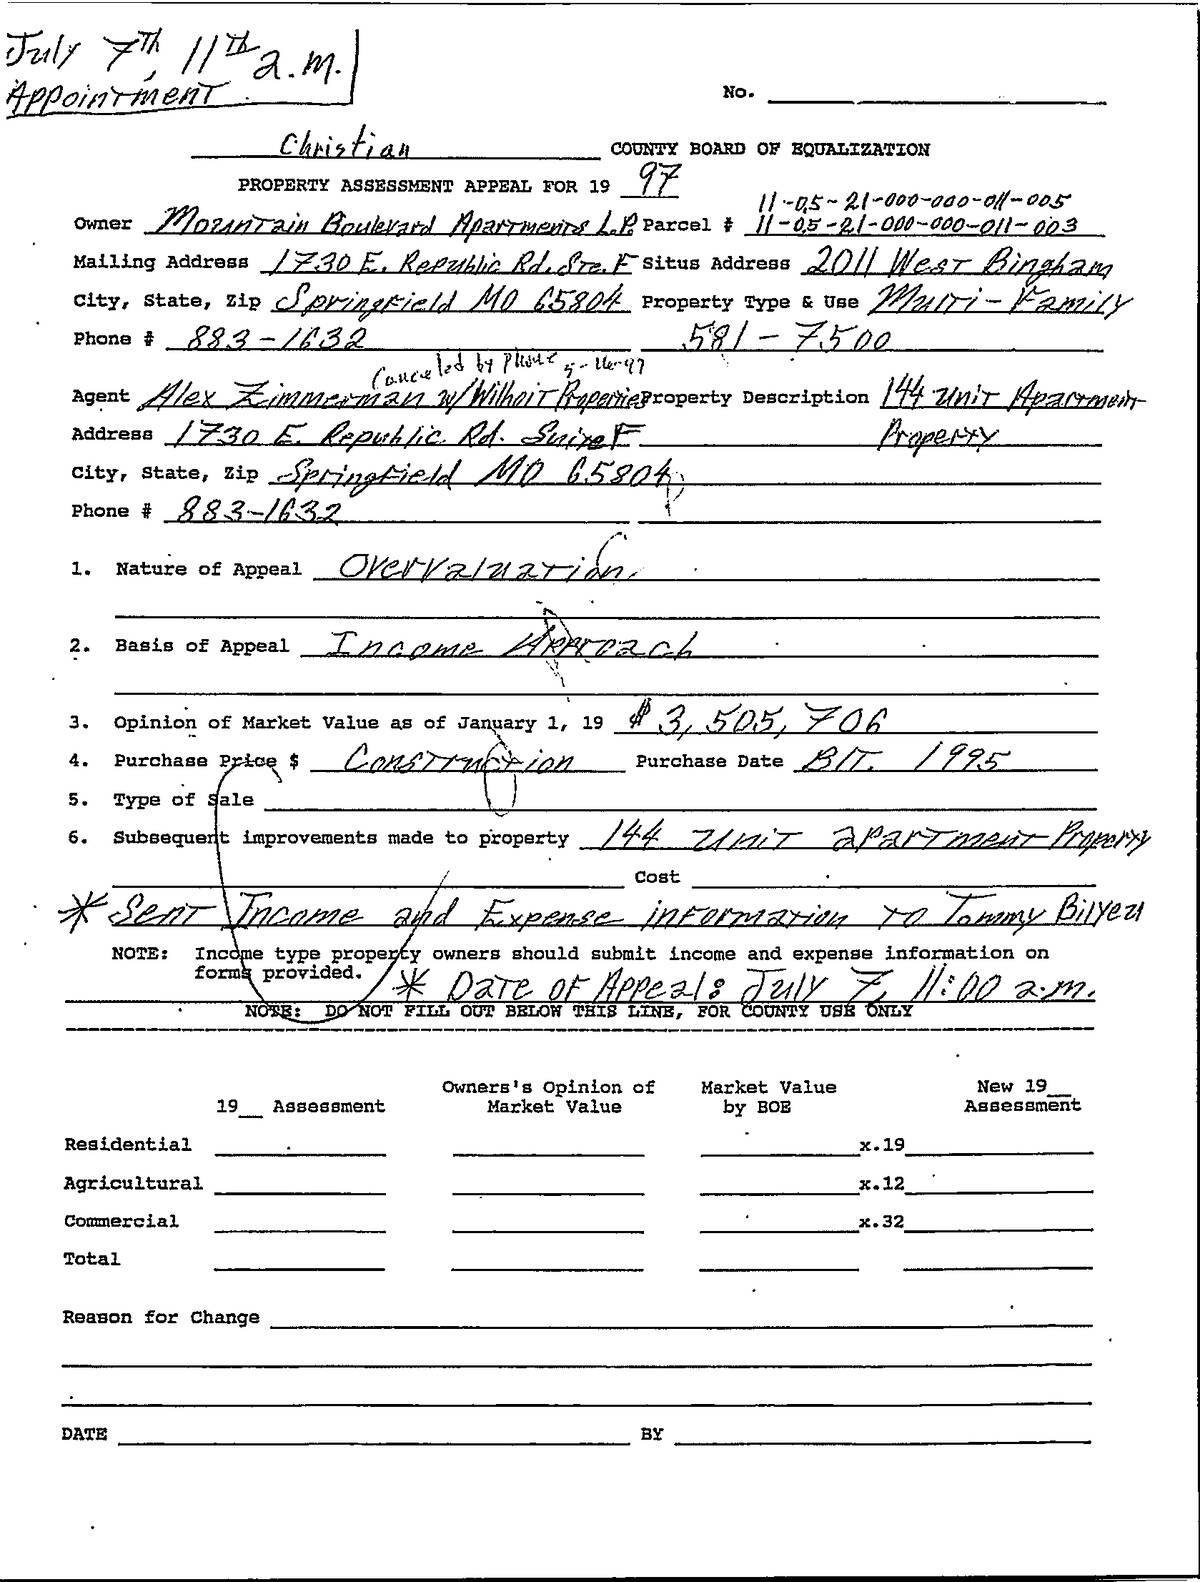 July 7th, 11th a.m.
Appointment
No.
Christian COUNTY BOARD OF EQUALIZATION
PROPERTY ASSESSMENT APPEAL FOR 19 97
11-05-21-000-000-011-005
Owner Mountain Boulevard Apartments L.P. Parcel # 11-05-21-000-000-011-003
Mailing Address 1730 E. Republic Rd. Ste. F Situs Address 2011 West Bingham
City, State, Zip Springfield MO 65804 Property Type & Use Multi-Family
Phone # 883-1632 581-7500
Canceled by Phone 5-16-97
Agent Alex Zimmerman w/Wilhoit Properties Property Description 144 Unit Apartment
Address 1730 E. Republic Rd. Suite F Property
City, State, Zip Springfield MO 65804
Phone # 883-1632
1. Nature of Appeal Overvaluation
2. Basis of Appeal Income Approach
3. Opinion of Market Value as of January 1, 19 $ 3,505,706
4. Purchase Price $ Construction Purchase Date BIT. 1995
5. Type of Sale
6. Subsequent improvements made to property 144 Unit apartment Property
Cost
* Sent Income and Expense information to Tommy Bilyeu
NOTE: Income type property owners should submit income and expense information on
forms provided.
* Date of Appeal: July 7, 11:00 a.m.
NOTE: DO NOT FILL OUT BELOW THIS LINE, FOR COUNTY USE ONLY
Owners's Opinion of Market Value New 19__
19__ Assessment Market Value by BOE Assessment
Residential x.19
Agricultural x.12
Commercial x.32
Total
Reason for Change
DATE BY